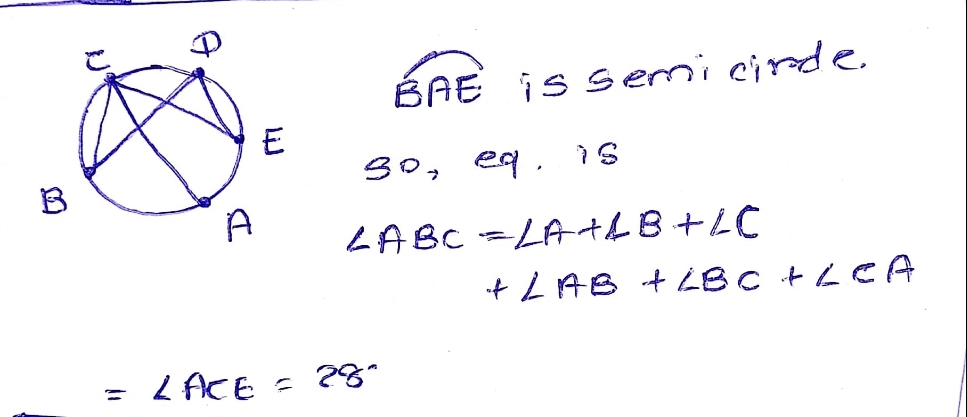 C D
E
B
A
BAE is semi circle.
so, eq. is
∠ABC = ∠A + ∠B + ∠C
+ ∠AB + ∠BC + ∠CA
= ∠ACE = 28°